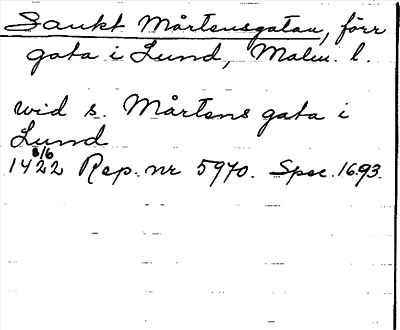 Sankt Mårtensgatan, förr
gata i Lund, Malm. l.
wid s. Mårtens gata i
Lund
1422 5/6 Rep. nr 5970. Spec. 1693.